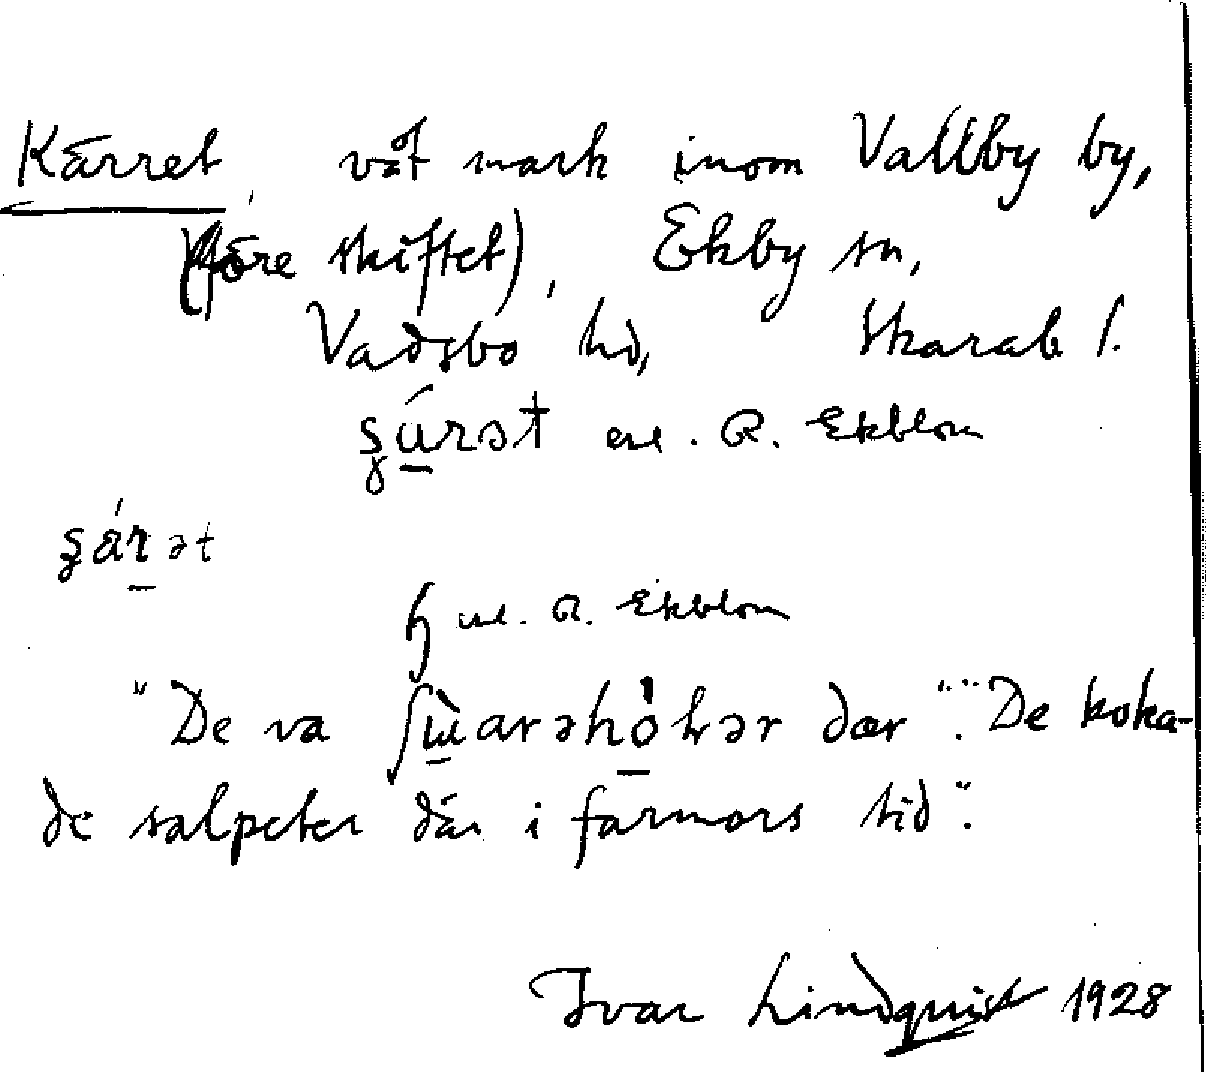 Kärret, våt mark inom Vallby by,
(före skiftet), Ekby sn,
Vadsbo hd, Skarab l.
enl. R. Ekblom
enl. R. Ekblom
"De va dær". "De koka-
de salpeter där i farmors tid".
Ivar Lindquist 1928